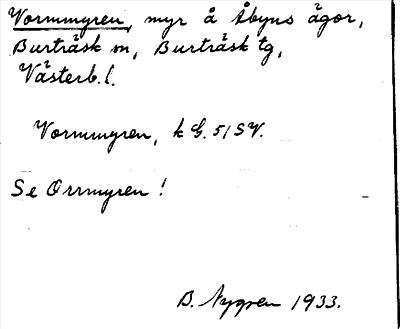 Vormmyren, myr å Åbyns ägor,
Burträsk sn, Burträsk tg,
Västerb. l.
Vormmyren, k G. 51 SV.
Se Orrmyren!
B. Nygren 1933.